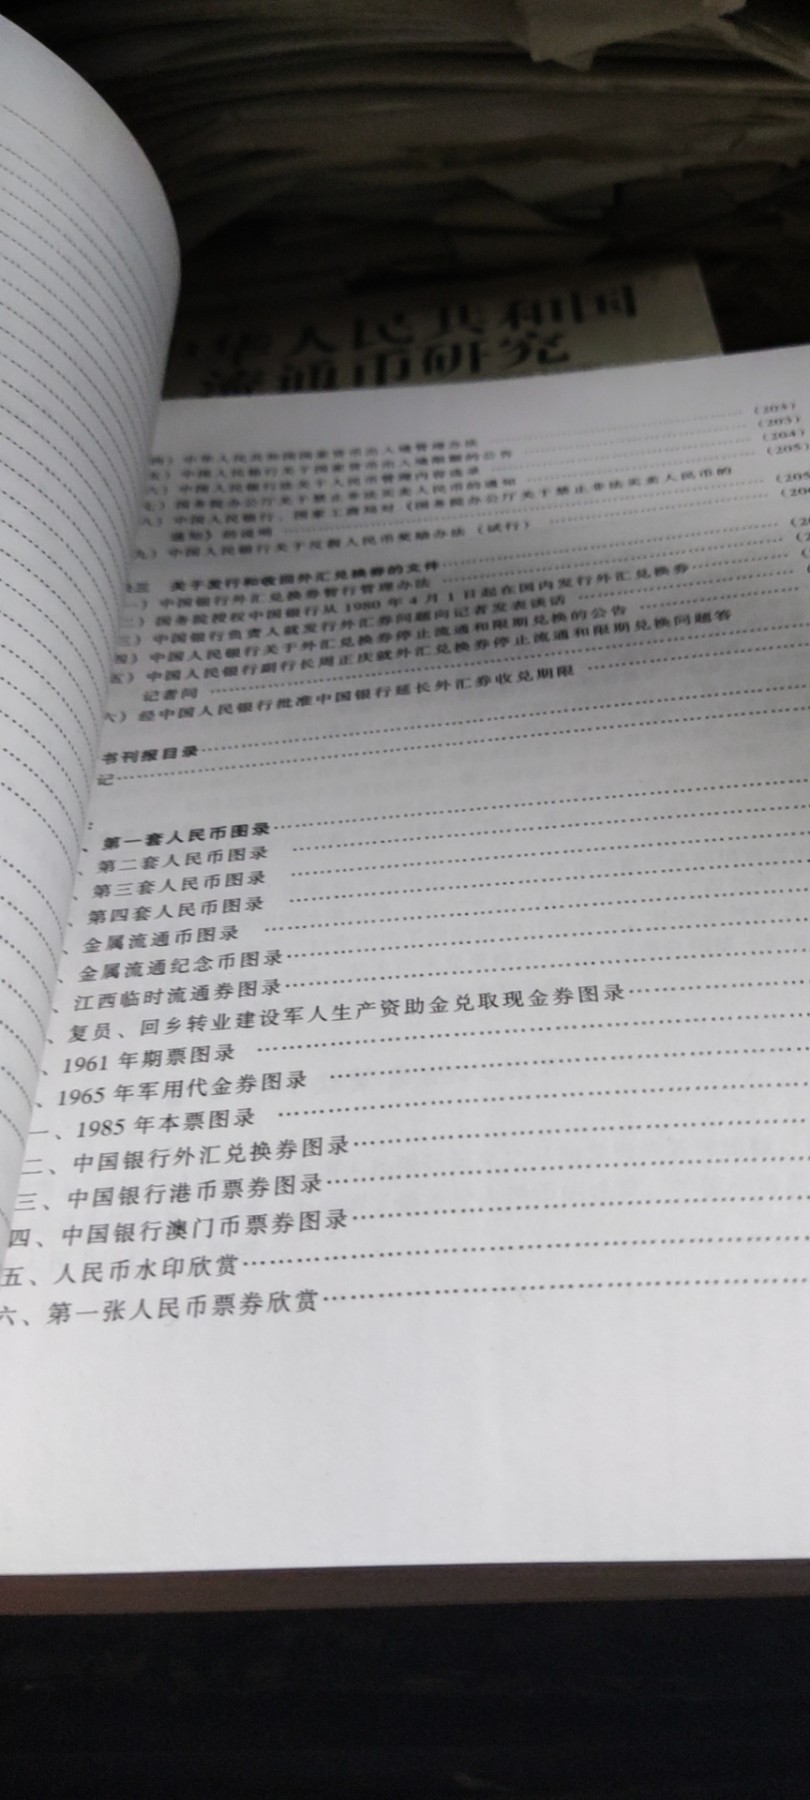 中华人民共和国
流通币研究
四）中华人民共和国国家货币出入境管理办法 ……（203）
五）中国人民银行关于国家货币出入境限额的公告 ……（203）
六）中国人民银行法关于人民币管理内容选录 ……（204）
七）国务院办公厅关于禁止非法买卖人民币的通知 ……（205）
八）中国人民银行、国家工商局对《国务院办公厅关于禁止非法买卖人民币的
通知》的说明 ……（205
九）中国人民银行关于反假人民币奖励办法（试行） ……（20
三 关于发行和收回外汇兑换券的文件……（20
一）中国银行外汇兑换券暂行管理办法 ……（2
二）国务院授权中国银行从1980年4月1日起在国内发行外汇兑换券……（
三）中国银行负责人就发行外汇券问题向记者发表谈话 ……（
四）中国人民银行关于外汇兑换券停止流通和限期兑换的公告 ……
五）中国人民银行副行长周正庆就外汇兑换券停止流通和限期兑换问题答
记者问 ……
六）经中国人民银行批准中国银行延长外汇券收兑期限 ……
书刊报目录……
记……
：
、第一套人民币图录……
、第二套人民币图录 ……
、第三套人民币图录 ……
、第四套人民币图录 ……
、金属流通币图录 ……
、金属流通纪念币图录……
、江西临时流通券图录……
、复员、回乡转业建设军人生产资助金兑取现金券图录……
、1961年期票图录 ……
、1965年军用代金券图录 ……
一、1985年本票图录 ……
二、中国银行外汇兑换券图录……
三、中国银行港币票券图录……
四、中国银行澳门币票券图录……
五、人民币水印欣赏……
六、第一张人民币票券欣赏……